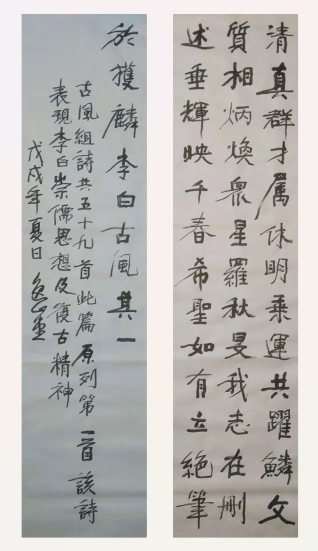 清真群才属休明乘運共躍鱗文
質相炳煥衆星羅秋旻我志在刪
述垂輝映千春希聖如有立絶筆
於獲麟李白古風其一
古風組詩共五十九首此篇原列第一首該詩
表現李白崇儒思想及復古精神
戊戌年夏日